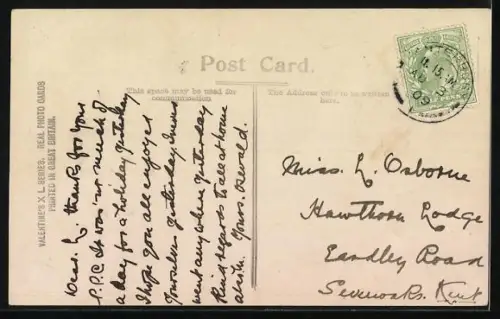 Post Card.
This space may be used for
communication
The Address only to be written
here.
VALENTINE'S X L SERIES. REAL PHOTO CARDS
PRINTED IN GREAT BRITAIN.
Dear L. thanks for your
P.P.C. It was not much of
a day for a holiday yesterday
I hope you all enjoyed
yourselves yesterday.
went any where yesterday
Kind regards to all at home
Yours. Oswald.
Miss. L. Osborne
Hawthorn Lodge
Eardley Road
Sevenoaks. Kent